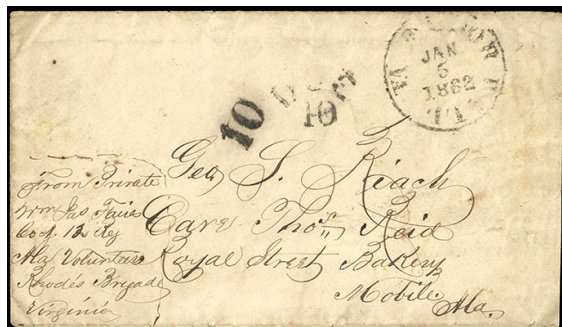 JAN
5
1862
10
10
Geo S. Riach
Care Thos. Reid
Royal Street Bakery
Mobile Ala.
From Private
Wm Jas
Co. 12 Reg
Ala Volunteers
Rhodes Brigade
Virginia